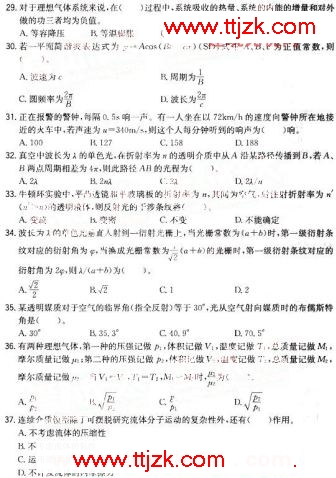 29. 对于理想气体系统来说,在( )过程中,系统吸收的热量、系统的内能的增量和对外
做的功三者均为负值。
A. 等容降压 B. 等温膨胀
www.ttjzk.com
30. 若一平面简谐波表达式为 Acos( 为正值常数,则
( )。
A. 波速为c B. 周期为1/B
C. 圆频率为2π/B D. 波长为2π/c
31. 正在报警的警钟,每隔0.5s响一声。有一人坐在以72km/h的速度向警钟所在地接
近的火车中,若声速为u=340m/s,则这个人每分钟听到的响声为( )响。
A. 100 B. 127 C. 158 D. 188
32. 真空中波长为λ的单色光,在折射率为n的透明介质中从A沿某路径传播到B,若A、
B两点周期相差为4π,则此路径AB的光程为( )。
A. 2λ B. 2nλ C. 3λ D. 2λ/n
33. 牛顿环实验中,平凸透镜和平玻璃板的折射率为n,其间为空气,后注射折射率为n′
的透明液体,则反射光的干涉条纹将( )
A. 变疏 B. 变密 C. 不变 D. 不能确定
34. 波长为λ的单色光垂直入射到一衍射光栅上,当光栅常数为(a+b)时,第一级衍射条
纹对应的衍射角为φ,当换成光栅常数为1/√2(a+b)的光栅时,第一级衍射条纹对应的
衍射角为2φ,则λ/(a+b)为( )。
A. √2/2 B. √2 C. 1 D. 2
35. 某透明媒质对于空气的临界角(指全反射)等于30°,光从空气射向媒质时的布儒斯特
角是( )。
A. 30° B. 35.3° C. 40.9° D. 70.5°
36. 有两种理想气体,第一种的压强记做p₁,体积记做V₁,温度记做T₁,总质量记做M₁,
摩尔质量记做μ₁;第二种的压强记做p₂,体积记做V₂,温度记做T₂,总质量记做M₂,
摩尔质量记做μ₂。当V₁=V₂,T₁=T₂,M₁=M₂时,μ₂/μ₁为( )。
37. 连续介质假设除了可摆脱研究流体分子运动的复杂性外,还有( )作用。
A. 不考虑流体的压缩性
B. 不
C. 运
www.ttjzk.com